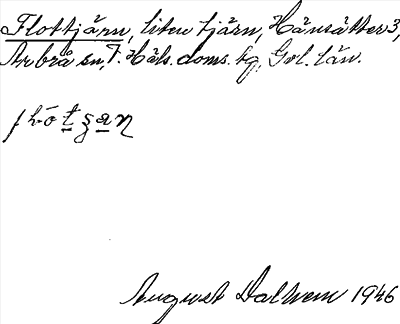 Flottjärn, liten tjärn, Hänsätter 3,
Arbrå sn, V. Häls. doms. tg, Gvl. län.
August Dalhem 1946